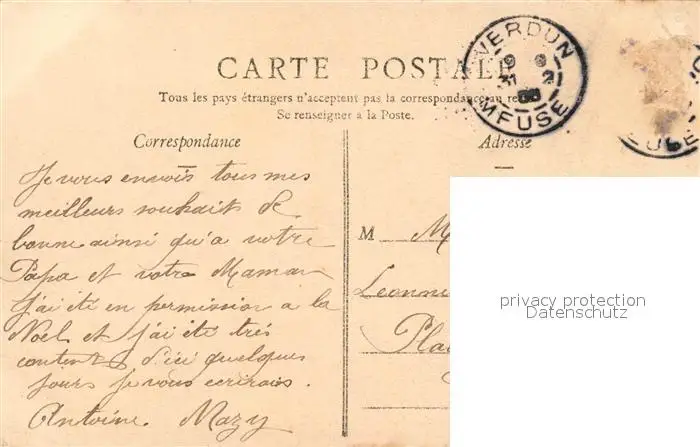 CARTE POSTALE
Tous les pays étrangers n'acceptent pas la correspondance au
Se renseigner à la Poste.
VERDUN
MEUSE
MEUSE
Correspondance
Adresse
Je vous envois tous mes
meilleurs souhait de
bonne ainsi qu'a votre
Papa et votre Maman
J'ai été en permission a la
Noel et j'ai été trés
content d'ici quelques
jours je vous ecrirais.
Antoine Mazy
M
privacy protection
Datenschutz